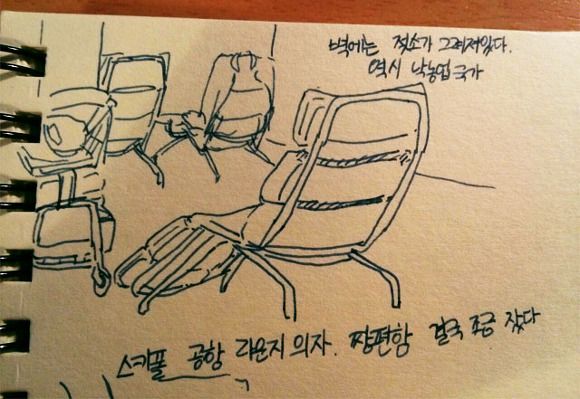 벽에는 젖소가 그려져있다.
역시 낙농업 국가
스키폴 공항 라운지 의자. 짱편함 결국 조금 잤다